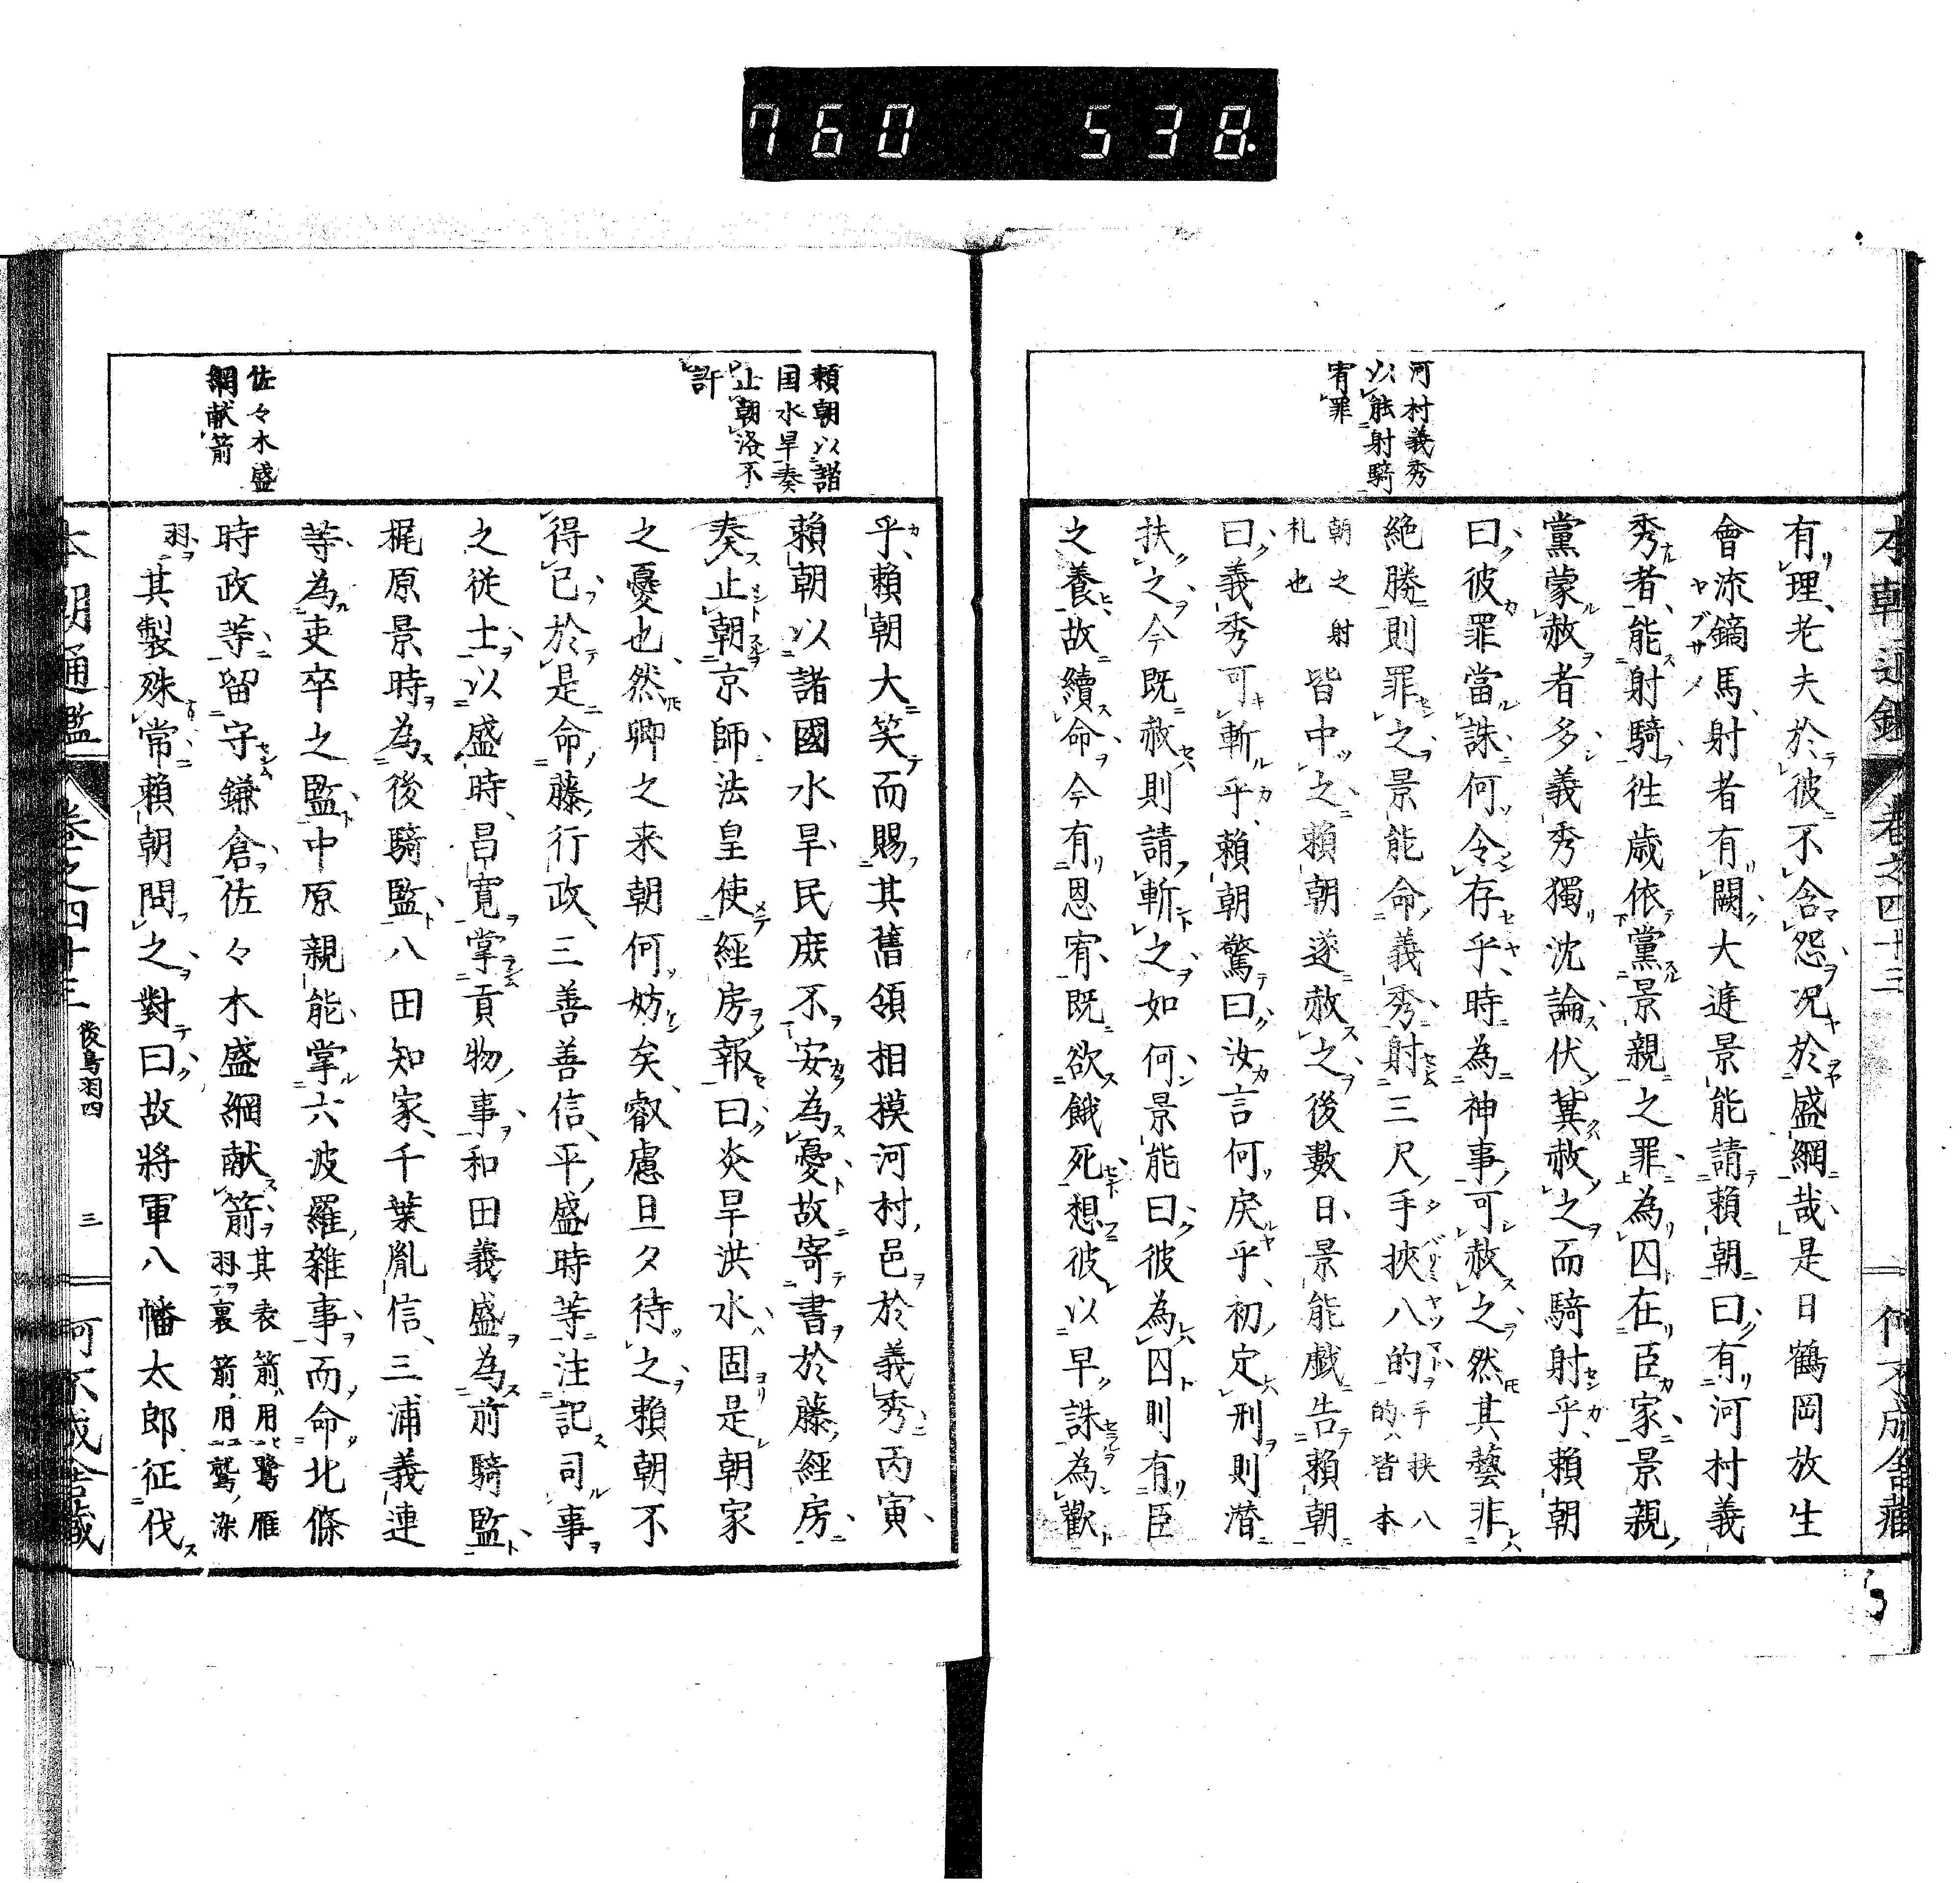 760 538.
本朝通鑑 卷之四十三 何不成舎藏
河村義秀
以能射騎
宥罪
有理老夫於彼不含怨況於盛綱哉是日鶴岡放生
會流鏑馬射者有闕大庭景能請賴朝曰有河村義
秀者能射騎徃歳依黨景親之罪為囚在臣家景親
黨蒙赦者多義秀獨沈淪伏冀赦之而騎射乎賴朝
曰彼罪當誅何令存乎時為神事可赦之然其藝非
絶勝則罪之景能命義秀射三尺手挾八的手挾八
的皆本
朝之射
札也皆中之賴朝遂赦之後數日景能戯告賴朝
曰義秀可斬乎賴朝驚曰汝言何戻乎初定刑則潜
扶之今既赦則請斬之如何景能曰彼為囚則有臣
之養故續命今有恩宥既欲餓死想彼以早誅為歡
賴朝以諸
国水旱奏
止朝洛不
許
佐々木盛
綱献箭
乎賴朝大笑而賜其舊領相摸河村邑於義秀丙寅
賴朝以諸國水旱民庶不安為憂故寄書於藤經房
奏止朝京師法皇使經房報曰炎旱洪水固是朝家
之憂也然卿之来朝何妨矣叡慮旦夕待之賴朝不
得已於是命藤行政三善善信平盛時等注記司事
之從士以盛時昌寛掌貢物事和田義盛為前騎監
梶原景時為後騎監八田知家千葉胤信三浦義連
等為吏卒之監中原親能掌六波羅雜事而命北條
時政等留守鎌倉佐々木盛綱献箭其表箭用鷺雁
羽裏箭用鷲染
羽其製殊常賴朝問之對曰故將軍八幡太郎征伐
本朝通鑑 卷之四十三 後鳥羽四 三 何不成舎藏